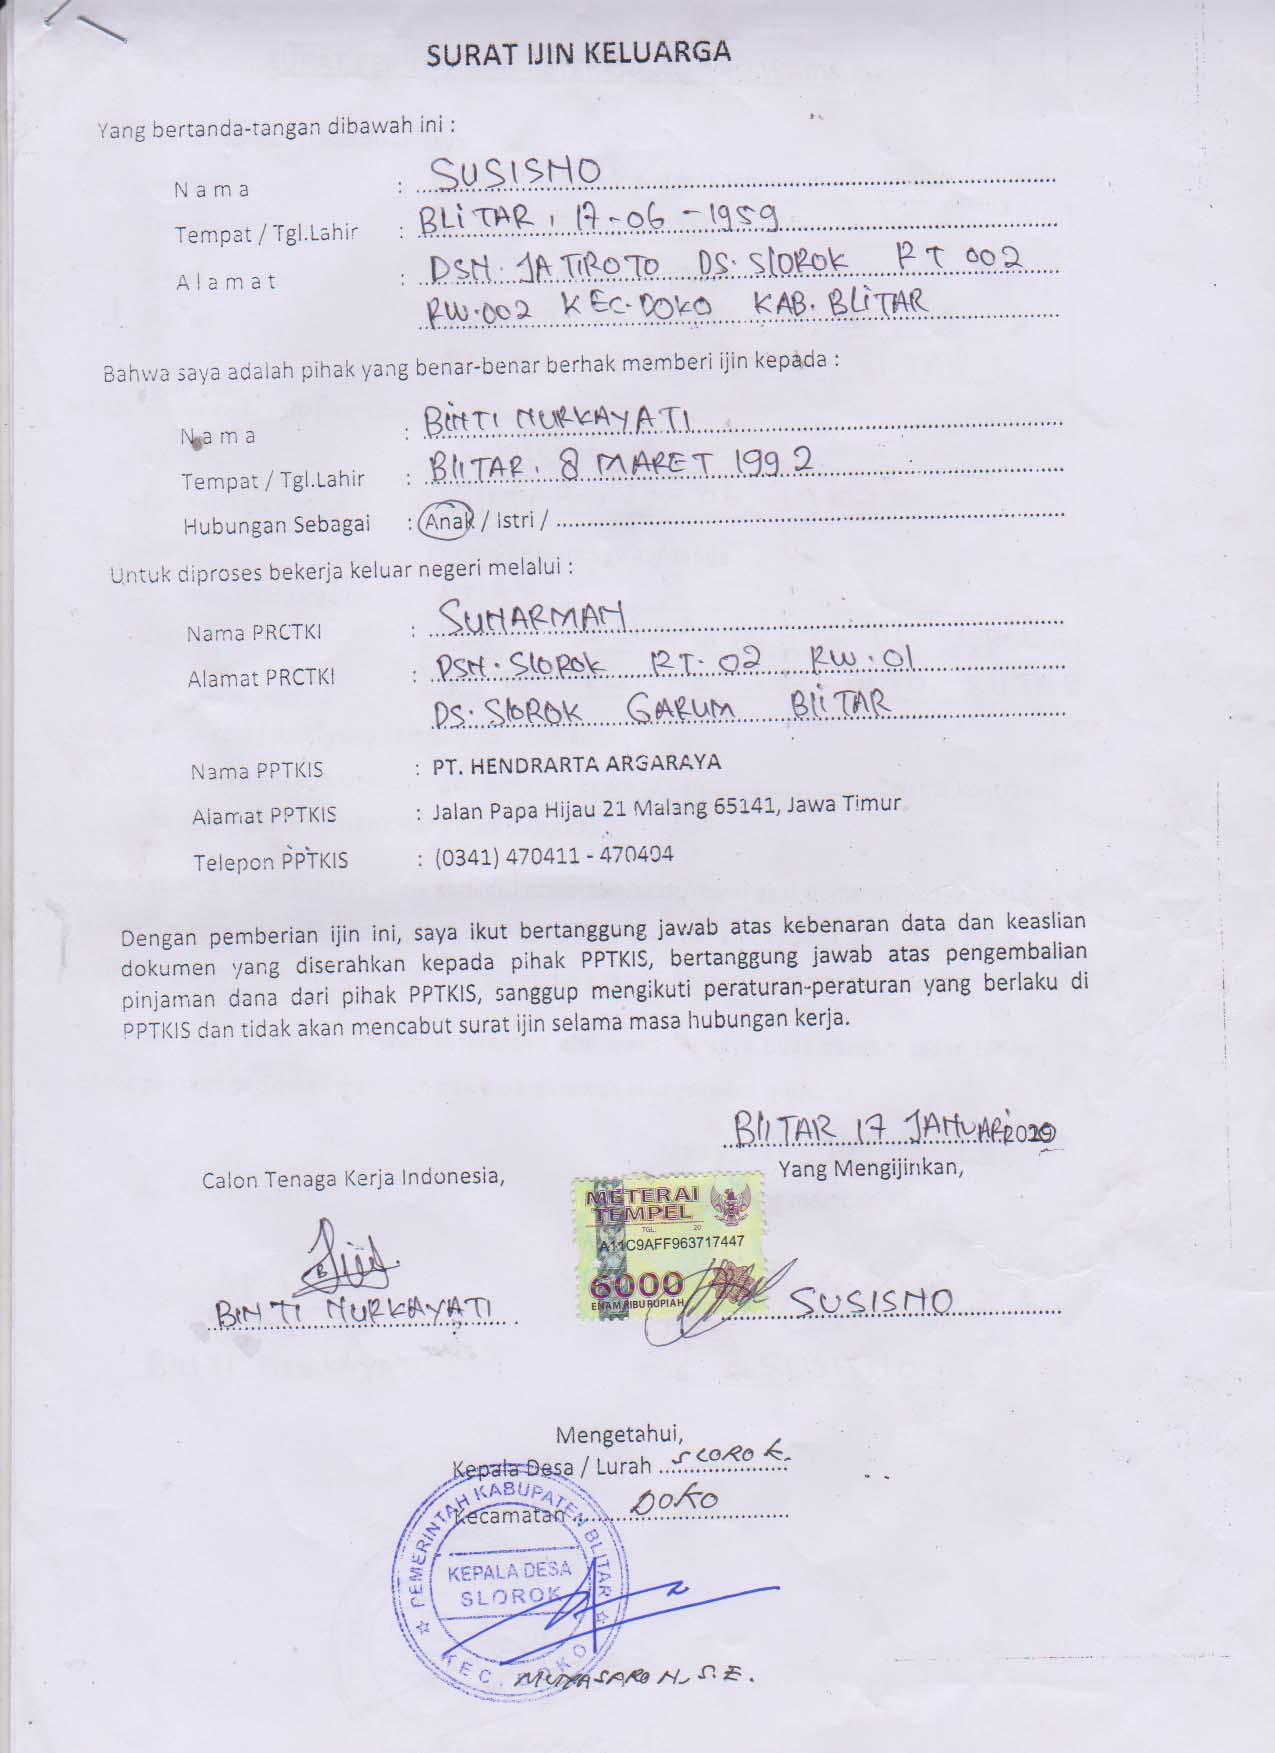 SURAT IJIN KELUARGA
Yang bertanda-tangan dibawah ini :
Nama : SUSISNO
Tempat / Tgl.Lahir : BLITAR, 17-06-1959
Alamat : DSN. JATIROTO DS. SLOROK RT 002
RW.002 KEC.DOKO KAB. BLITAR
Bahwa saya adalah pihak yang benar-benar berhak memberi ijin kepada :
Nama : BINTI NURKAYATI
Tempat / Tgl.Lahir : BLITAR, 8 MARET 1992
Hubungan Sebagai : Anak / Istri /
Untuk diproses bekerja keluar negeri melalui :
Nama PRCTKI : SUNARMAN
Alamat PRCTKI : DSN. SLOROK RT. 02 RW. 01
DS. SLOROK GARUM BLITAR
Nama PPTKIS : PT. HENDRARTA ARGARAYA
Alamat PPTKIS : Jalan Papa Hijau 21 Malang 65141, Jawa Timur
Telepon PPTKIS : (0341) 470411 - 470404
Dengan pemberian ijin ini, saya ikut bertanggung jawab atas kebenaran data dan keaslian
dokumen yang diserahkan kepada pihak PPTKIS, bertanggung jawab atas pengembalian
pinjaman dana dari pihak PPTKIS, sanggup mengikuti peraturan-peraturan yang berlaku di
PPTKIS dan tidak akan mencabut surat ijin selama masa hubungan kerja.
BLITAR 17 JANUARI
Calon Tenaga Kerja Indonesia,
Yang Mengijinkan,
METERAI
TEMPEL
TGL. 20
A11C9AFF963717447
6000
ENAM RIBU RUPIAH
BINTI NURKAYATI
SUSISNO
Mengetahui,
Kepala Desa / Lurah SLOROK.
Kecamatan DOKO
PEMERINTAH KABUPATEN BLITAR
KEPALA DESA
SLOROK
KEC. DOKO
S.E.